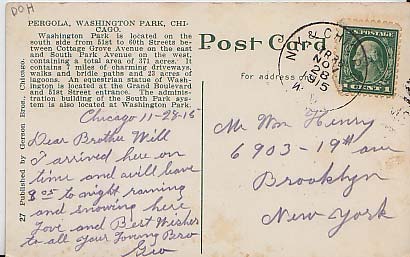 DOH
PERGOLA, WASHINGTON PARK, CHI-
CAGO.
Washington Park is located on the
south side from 51st to 60th Streets be-
tween Cottage Grove Avenue on the east
and South Park Avenue on the west,
containing a total area of 371 acres. It
contains 7 miles of charming driveways,
walks and bridle paths and 23 acres of
lagoons. An equestrian statue of Wash-
ington is located at the Grand Boulevard
and 51st Street entrance. The adminis-
tration building of the South Park sys-
tem is also located at Washington Park.
Chicago 11-28-15
Dear Brother Will
I arrived here on
time and will leave
8 05 to night raining
and snowing here
Love and Best Wishes
to all your loving Bro
Geo
27 Published by Gerson Bros., Chicago.
Post Card
For address
N.Y. & CH
NOV
28
1915
ONE CENT 1
Mr Wm Henry
6903-19th ave
Brooklyn
New York